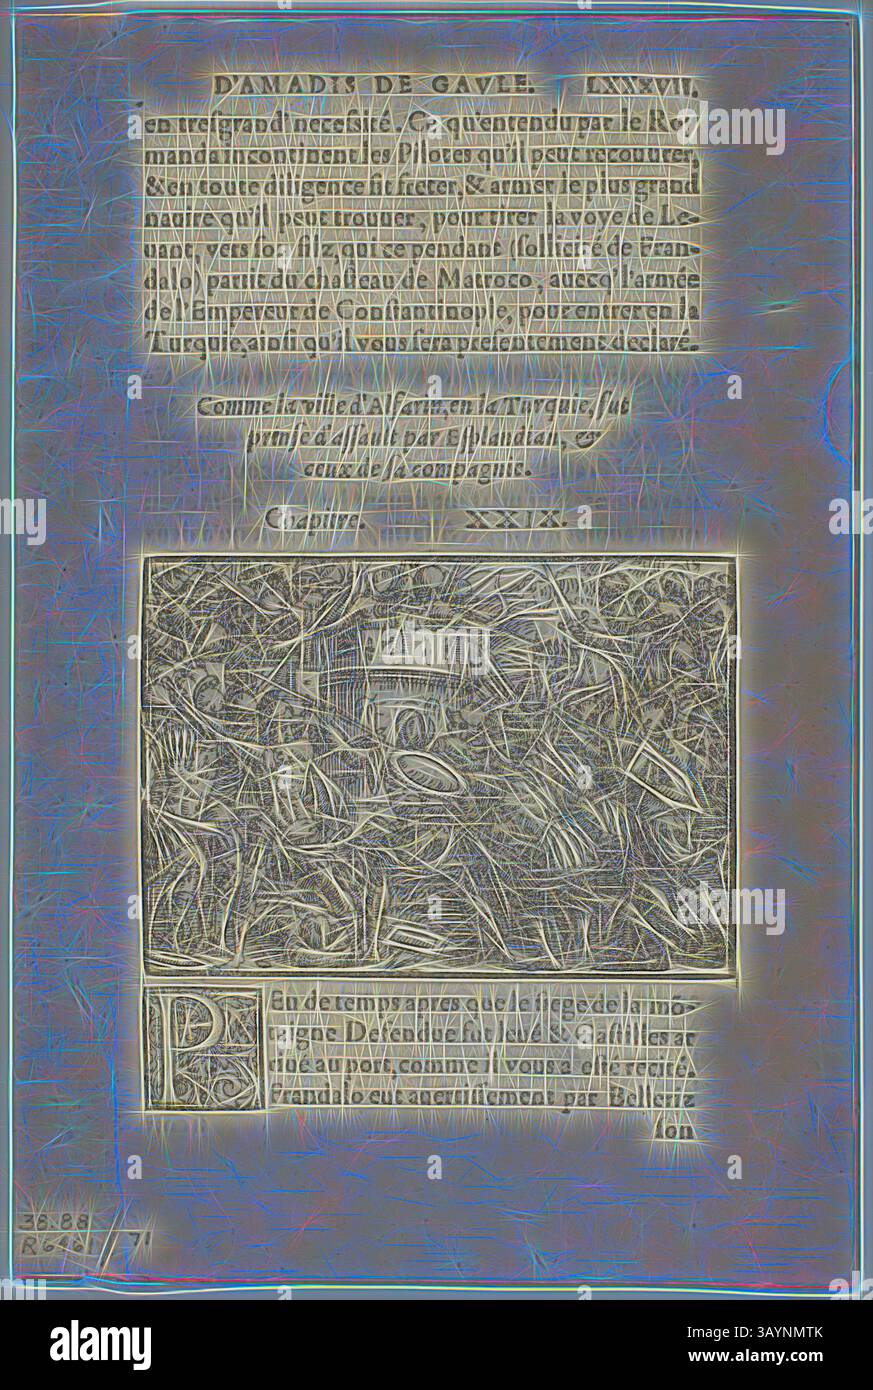 D'AMADIS DE GAVLE. LXXXVII.
en tresgrand' necessité. Ce qu'entendu par le Roy
manda incontinent les Pilotes qu'il peut recouurer,
& en toute diligence fit freter, & armer le plus grand
nauire qu'il peut trouuer, pour tirer la voye de Le-
uant, vers son filz, qui ce pendant (sollicité de Fran-
dalo) partit du chasteau de Matroco, auecq' l'armée
de l'Empereur de Constantinople, pour entrer en la
Turquie, ainsi qu'il vous sera presentement declaré.
Comme la ville d'Alfarin, en la Turquie, fut
prinse d'assault par Esplandian, &
ceux de sa compagnie.
Chapitre. XXIX.
PEu de temps apres que le siege de la mõ-
taigne Defendue fut leué &
au port, comme il vous a esté recité,
Frandalo eut auertissement par Belleriz
son
38.88
R6461 71
alamy
Image ID: 3AYNMTK
www.alamy.com